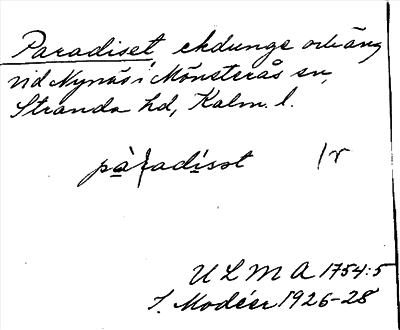 Paradiset, ekdunge och äng
vid Nynäs i Mönsterås sn,
Stranda hd, Kalm. l.
paradiset /r
ULMA 1754:5
I. Modéer 1926-28